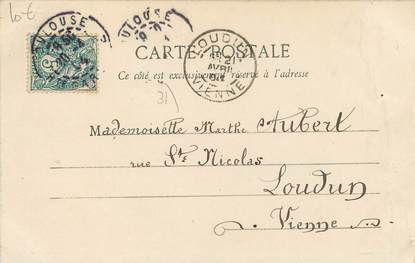 Lot
TOULOUSE
TOULOUSE
LOUDUN
21
AVRIL
VIENNE
CARTE POSTALE
Ce côté est exclusivement réservé à l'adresse
31
Mademoiselle Marthe Aubert
rue St. Nicolas
Loudun
Vienne